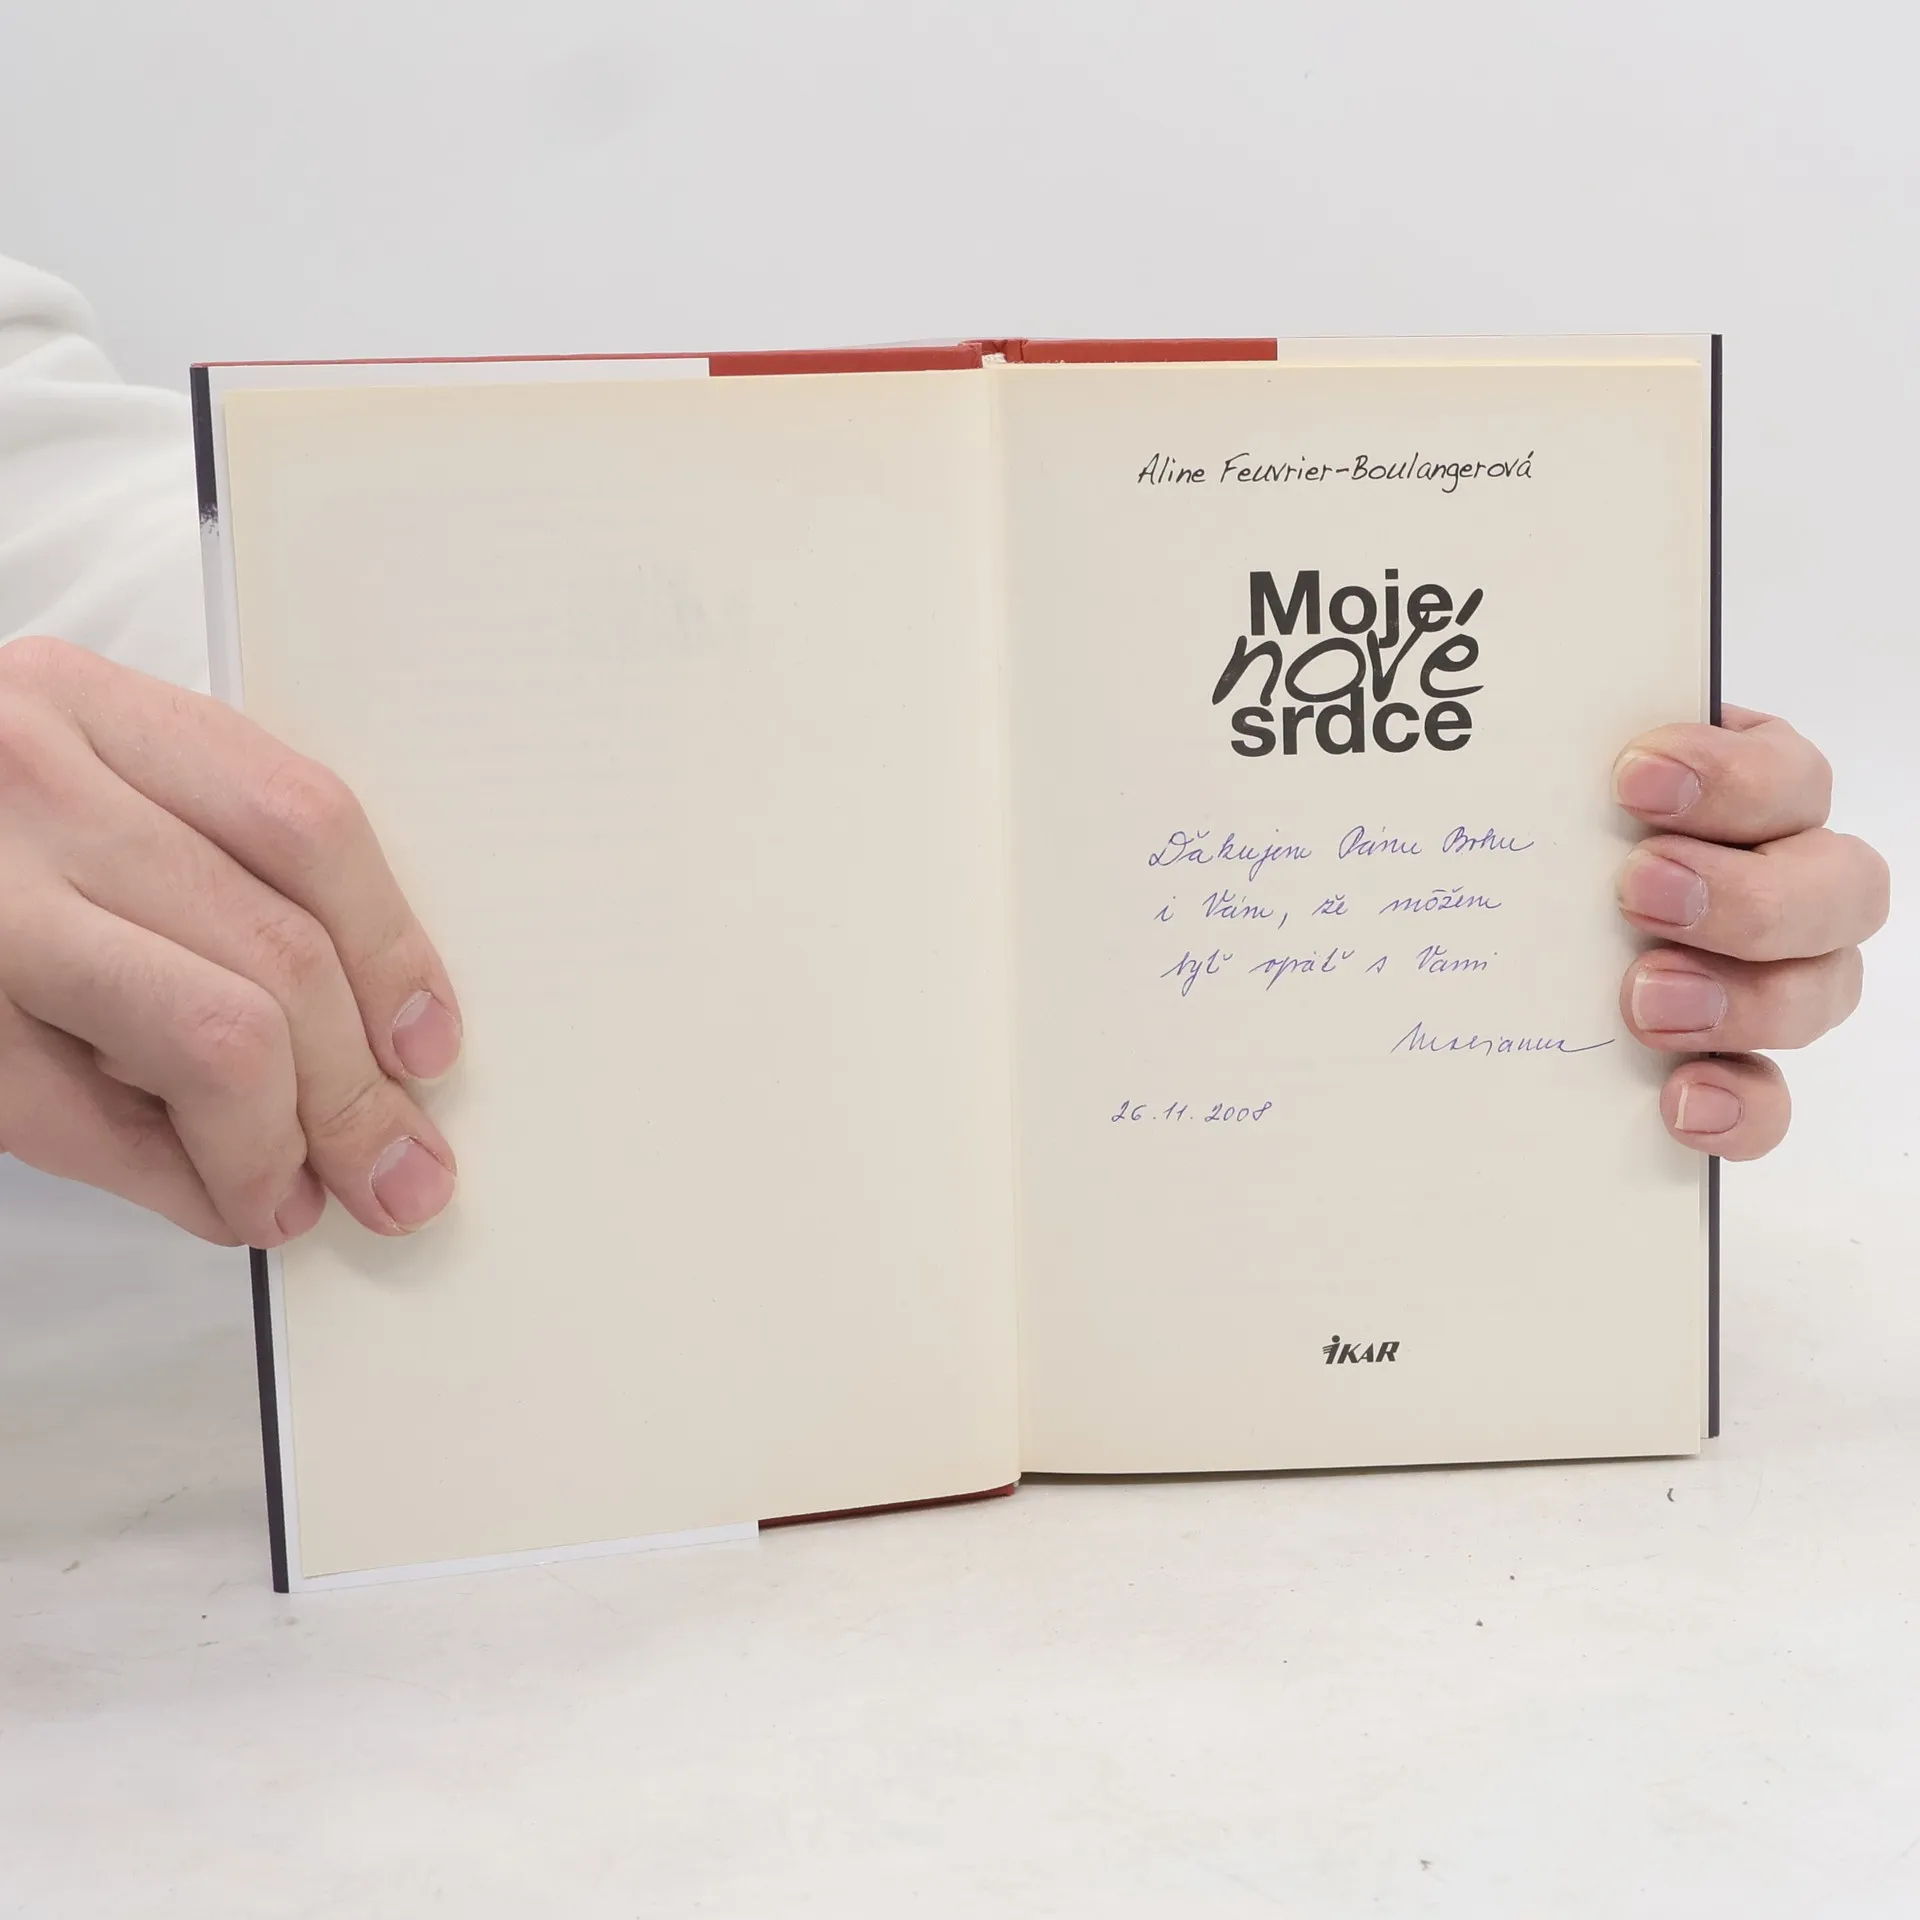 Aline Feuvrier-Boulangerová
Moje
nové
srdce
Ďakujem Pánu Bohu
i Vám, že môžem
byť opäť s Vami
Marianna
26.11.2008
IKAR